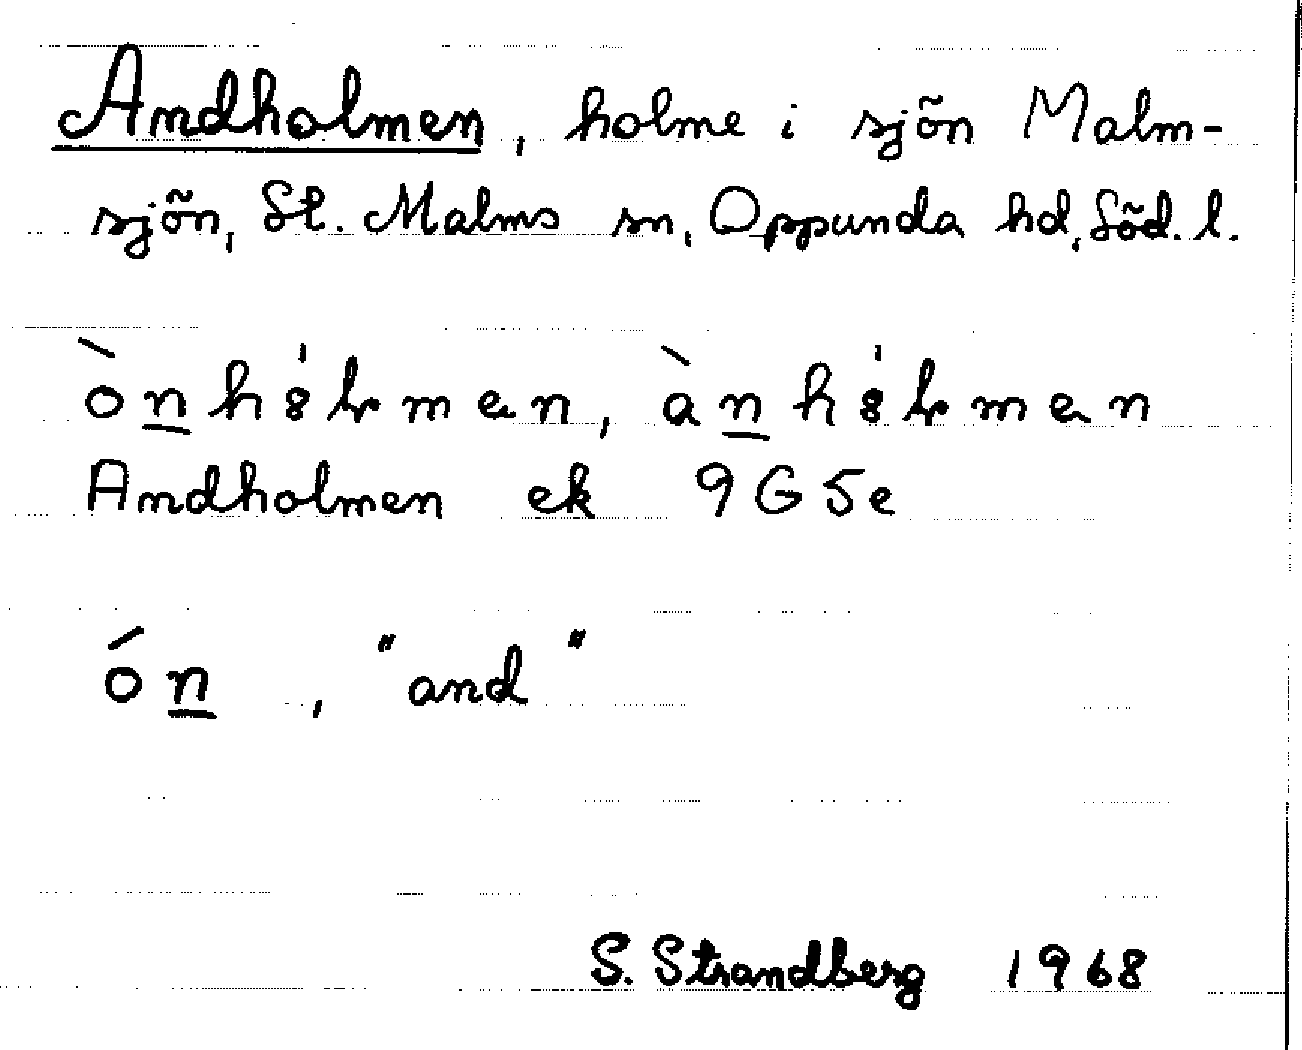 Andholmen, holme i sjön Malm-
sjön, St. Malms sn, Oppunda hd, Söd. l.
ònhȯlmen, ànhȯlmen
Andholmen ek 9G5e
ón , "and"
S. Strandberg 1968